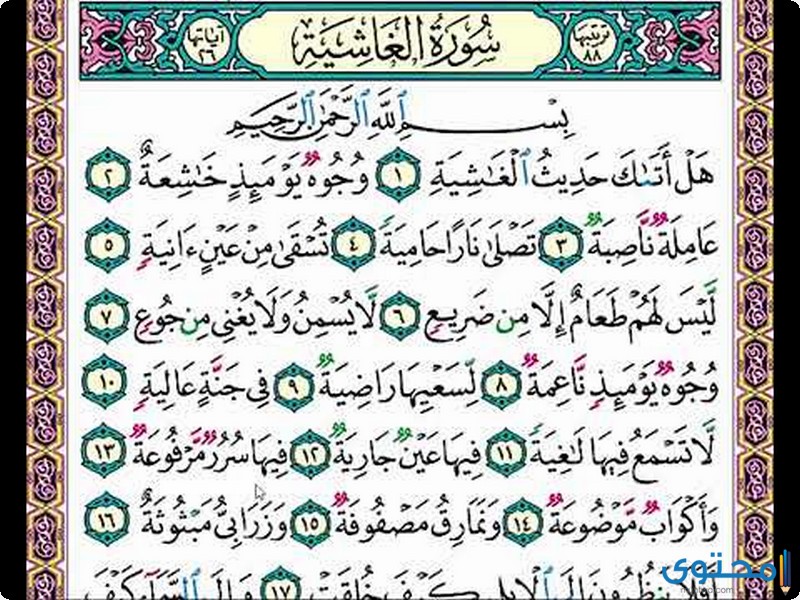 ترتيبها ٨٨ سُورَةُ الغَاشِيَةِ آياتها ٢٦
بِسْمِ ٱللَّهِ ٱلرَّحْمَٰنِ ٱلرَّحِيمِ
هَلْ أَتَىٰكَ حَدِيثُ ٱلْغَٰشِيَةِ ١ وُجُوهٌ يَوْمَئِذٍ خَٰشِعَةٌ ٢
عَامِلَةٌ نَّاصِبَةٌ ٣ تَصْلَىٰ نَارًا حَامِيَةً ٤ تُسْقَىٰ مِنْ عَيْنٍ ءَانِيَةٍ ٥
لَّيْسَ لَهُمْ طَعَامٌ إِلَّا مِن ضَرِيعٍ ٦ لَّا يُسْمِنُ وَلَا يُغْنِى مِن جُوعٍ ٧
وُجُوهٌ يَوْمَئِذٍ نَّاعِمَةٌ ٨ لِّسَعْيِهَا رَاضِيَةٌ ٩ فِى جَنَّةٍ عَالِيَةٍ ١٠
لَّا تَسْمَعُ فِيهَا لَٰغِيَةً ١١ فِيهَا عَيْنٌ جَارِيَةٌ ١٢ فِيهَا سُرُرٌ مَّرْفُوعَةٌ ١٣
وَأَكْوَابٌ مَّوْضُوعَةٌ ١٤ وَنَمَارِقُ مَصْفُوفَةٌ ١٥ وَزَرَابِىُّ مَبْثُوثَةٌ ١٦
يَنظُرُونَ إِلَى ٱلْإِبِلِ كَيْفَ خُلِقَتْ ١٧ وَإِلَى ٱلسَّمَآءِ كَيْفَ
محتوى